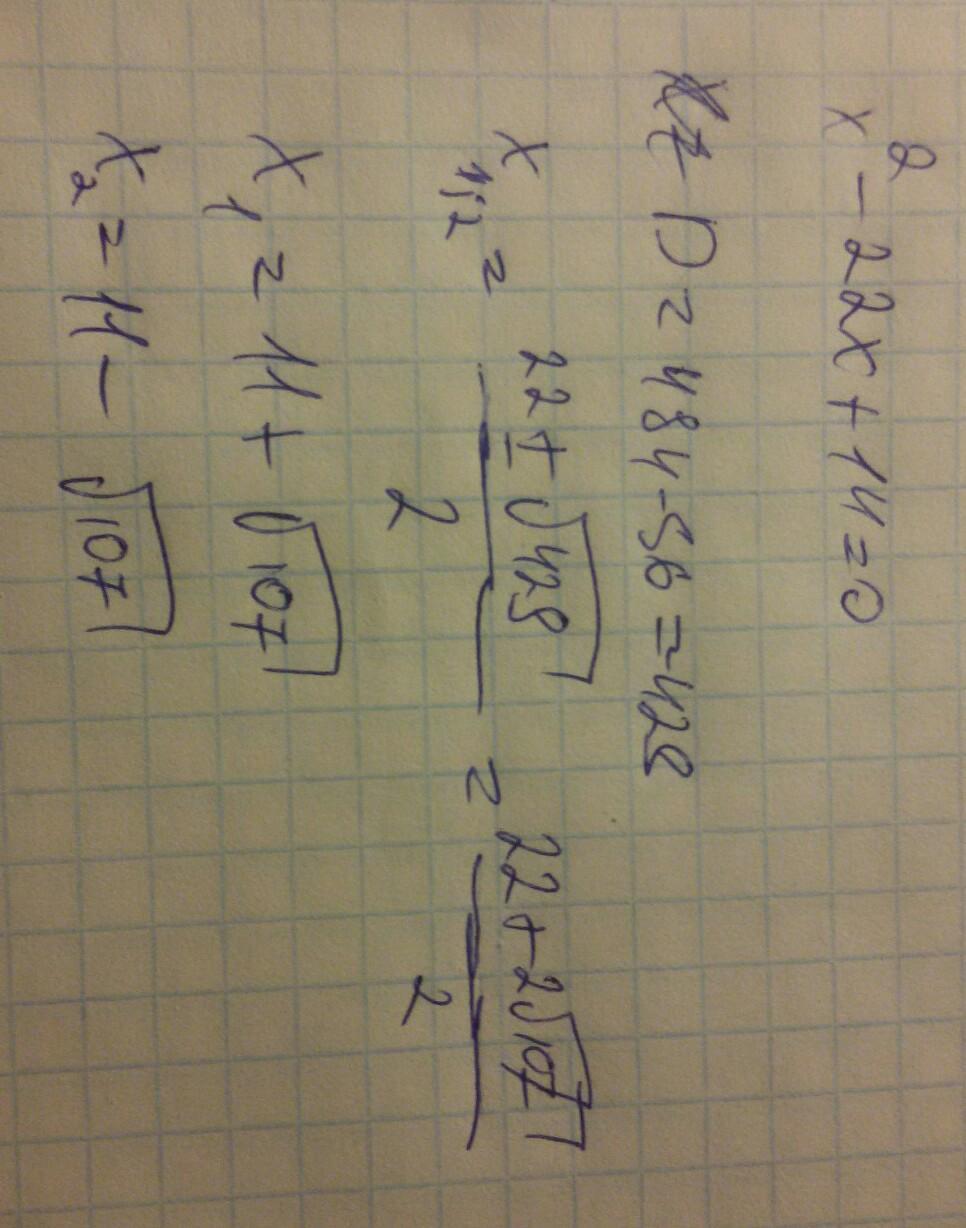 x² - 22x + 14 = 0
D = 484 - 56 = 428
x₁;₂ = (22 ± √428)/2 = (22 + 2√107)/2
x₁ = 11 + √107
x₂ = 11 - √107